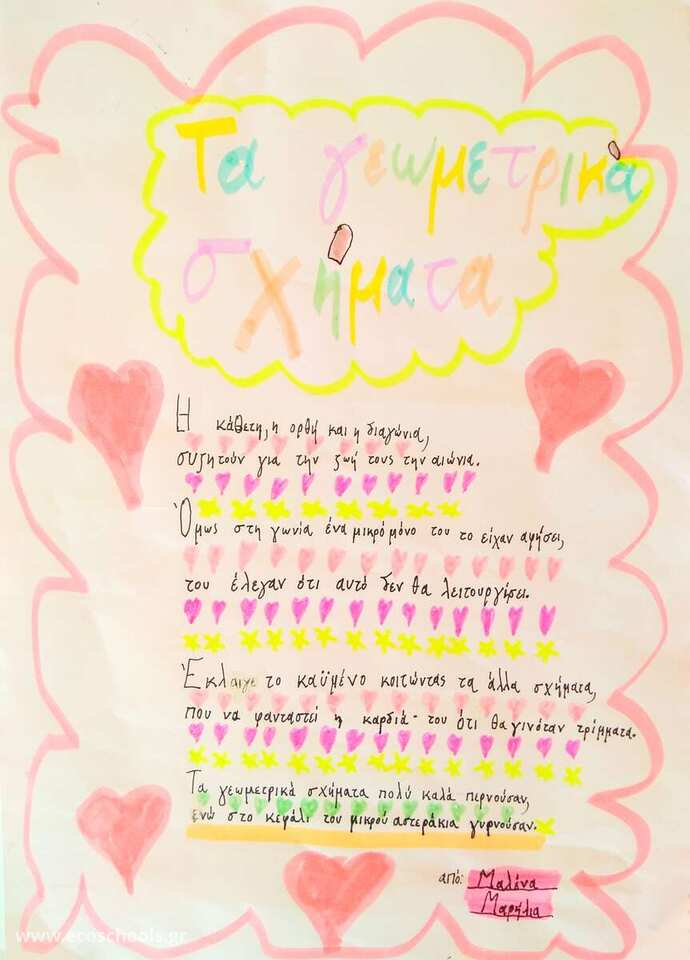 Τα γεωμετρικά
σχήματα
Η κάθετη, η ορθή και η διαγώνια,
συζητούν για την ζωή τους την αιώνια.
Όμως στη γωνία ένα μικρό μόνο του το είχαν αφήσει,
του έλεγαν ότι αυτό δεν θα λειτουργήσει.
Έκλαιγε το καϋμένο κοιτώντας τα άλλα σχήματα,
που να φανταστεί η καρδιά του ότι θα γινόταν τρίμματα.
Τα γεωμετρικά σχήματα πολύ καλά περνούσαν,
ενώ στο κεφάλι του μικρού αστεράκια γυρνούσαν.
από: Μαλένα
Μαρήλια
www.ecoschools.gr